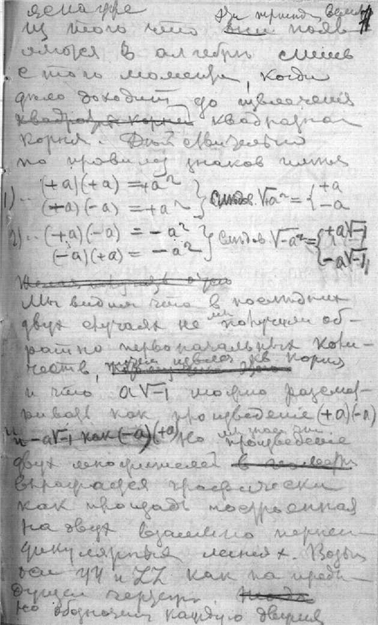 из того что они появ
ляются в алгебры
с того момента, когда
дело доходит до извлечения
квадратных корней квадратного
корня. Действительно
по правилу знаков имеем
1) (+a)(+a) = +a²
(+a)(-a) = +a² следов √+a² = { +a -a
2) (+a)(-a) = -a²
(-a)(+a) = -a² следов √-a² = { +a√-1 -a√-1
Мы видим что в последних
двух случаях не мы получили об
ратно первоначальных коли
честв,
и что a√-1 можно рассмат
ривать как произведение (+a)(-a)
и -a√-1 как (-a)(+a) Но произведение
двух множителей
выражается графически
как площадь построенная
на двух взаимно перпен
дикулярных линиях. Возь
мем YY и ZZ как на преды
дущем чертеже.
но обозначим каждую двумя